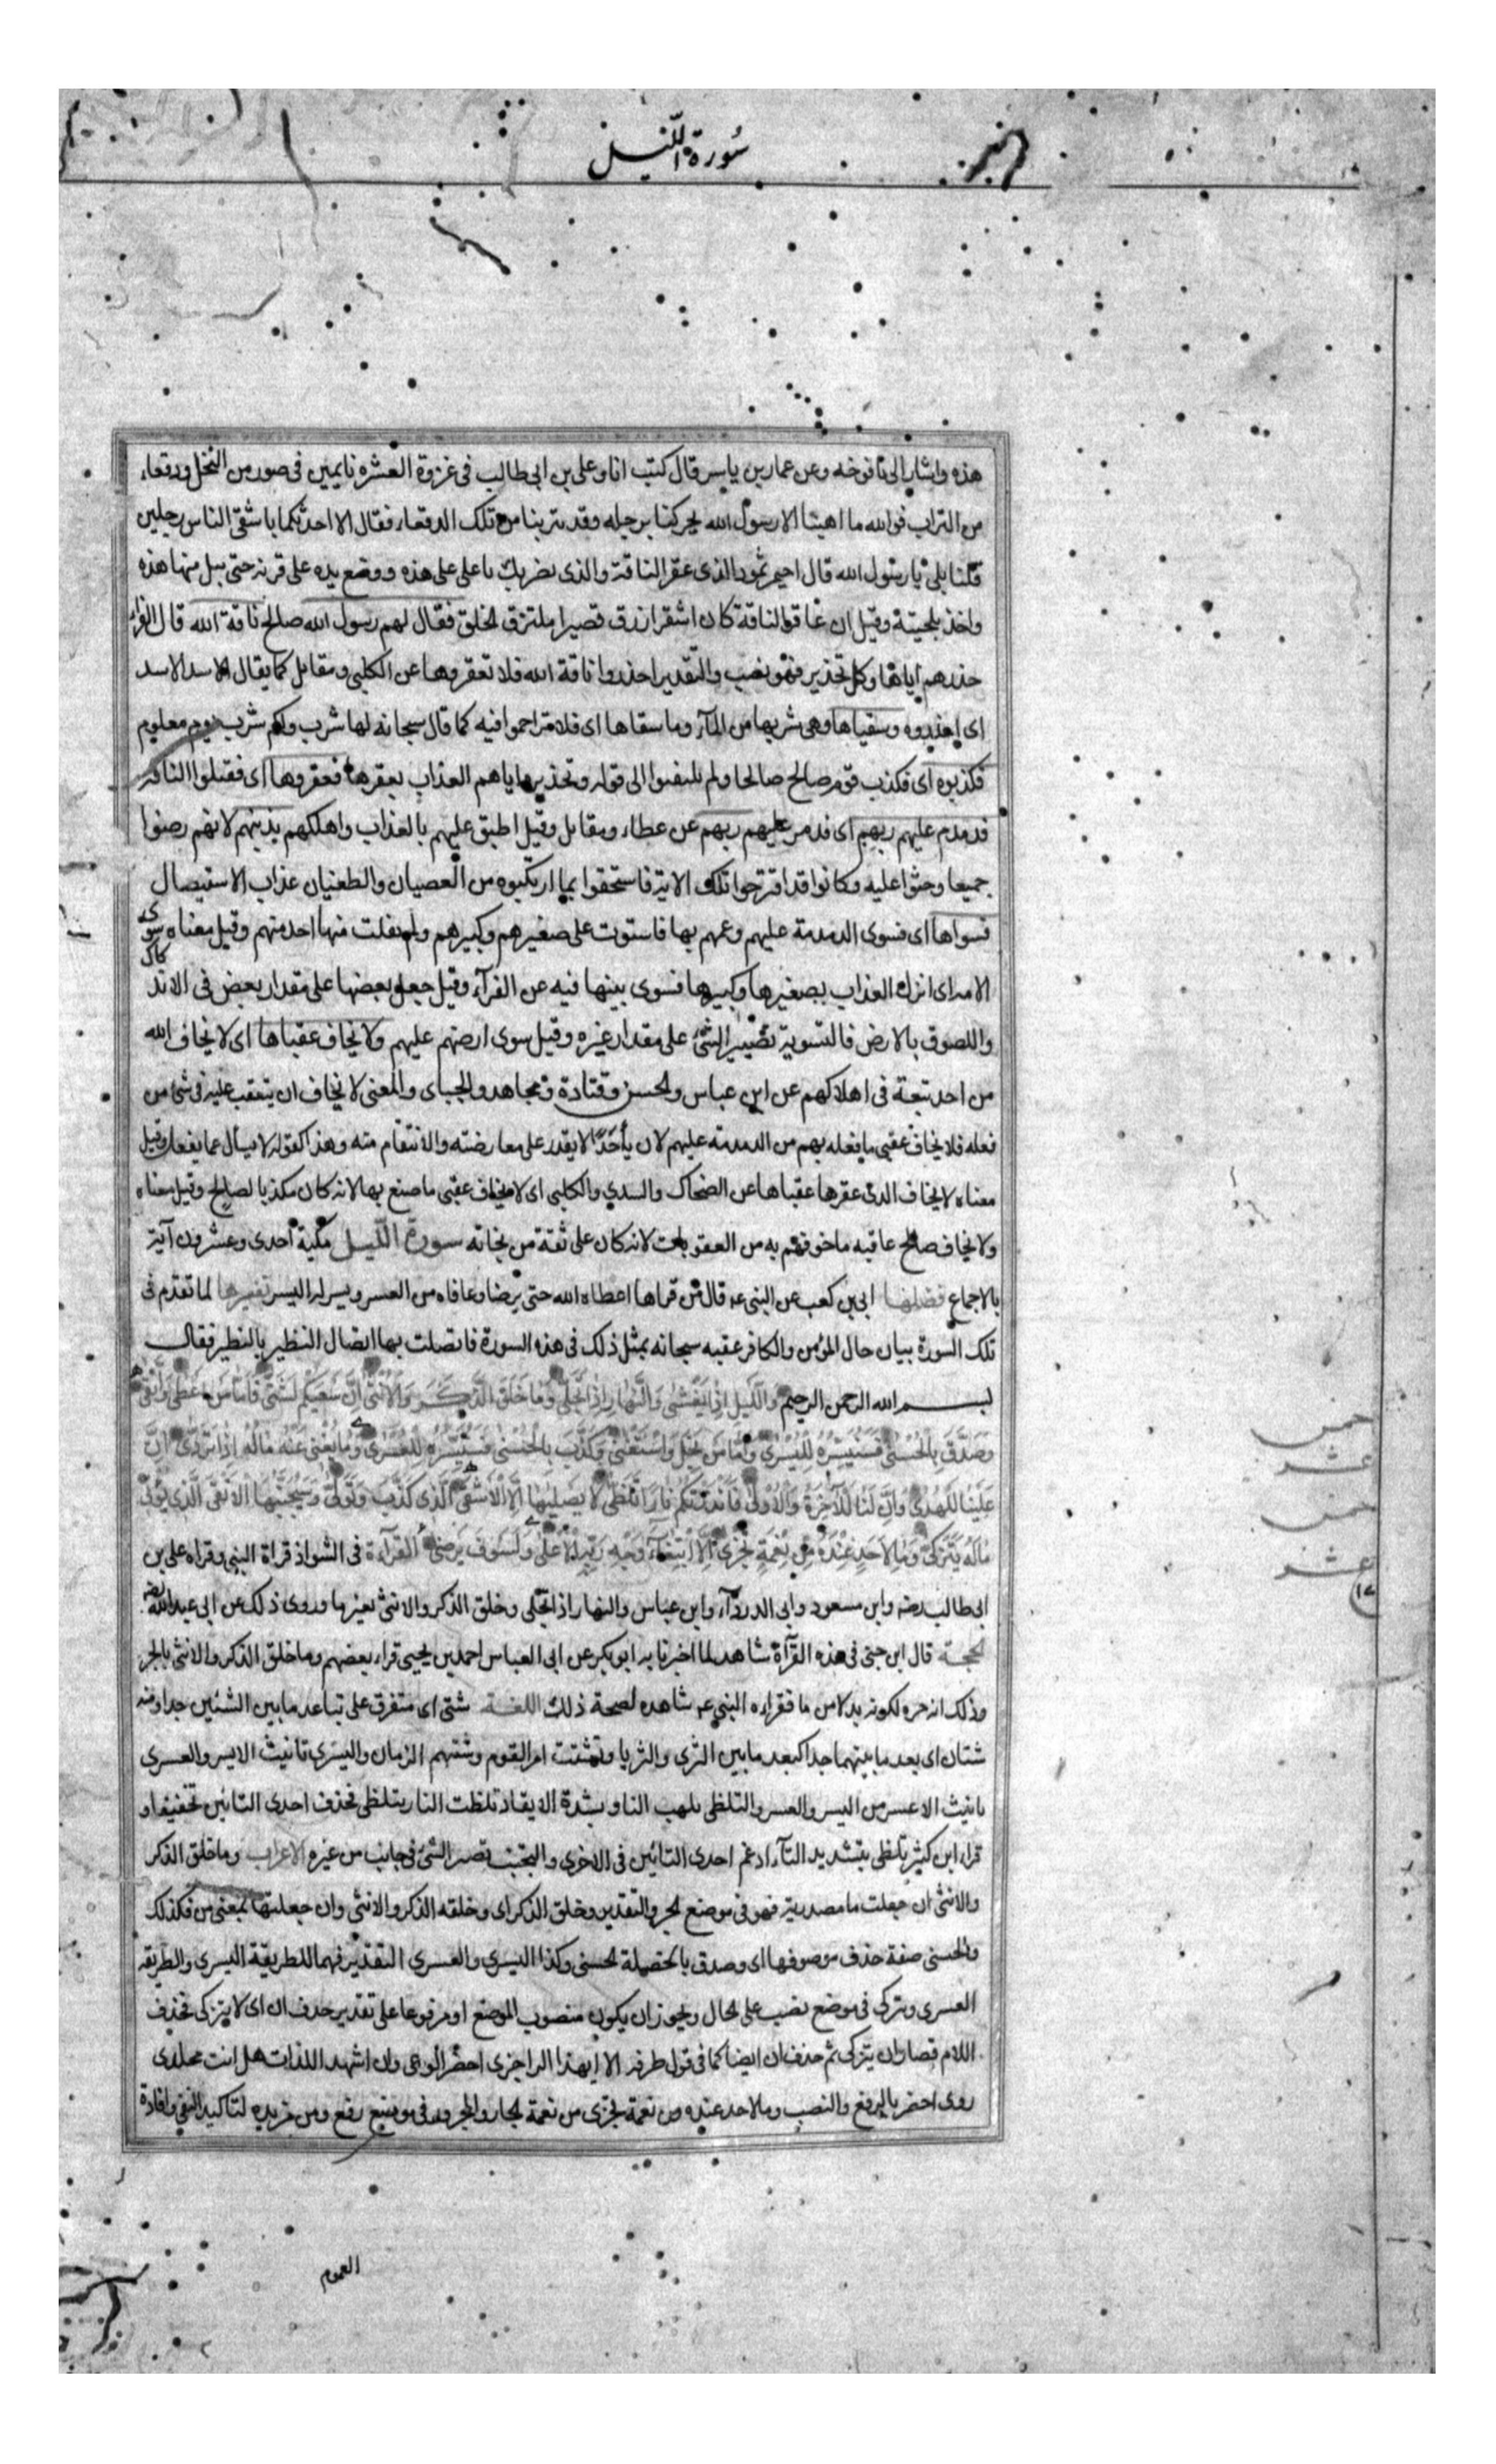 سورة اللّيل
هذه واشار الى يافوخه وعن عمار بن ياسر قال كنت انا وعلى بن ابى طالب فى غزوة العشره نايمين فى صور من النخل ودقعاء
من التراب فوالله ما اهبنا الا رسول الله يحركنا برجله وقد تتربنا من تلك الدقعاء فقال الا احدثكما باشقى الناس رجلين
قلنا بلى يا رسول الله قال احيمر ثمود الذى عقر الناقة والذى يضربك يا على على هذه ووضع يده على قرنه حتى يبل منها هذه
واخذ بلحيتة وقيل ان عاقر الناقة كان اشقر ازرق قصيرا ملتزق الخلق فقال لهم رسول الله صالح ناقة الله قال الفراء
حذرهم اياها وكل تحذير فهو نصب والتقدير احذروا ناقة الله فلا تعقروها عن الكلبى ومقاتل كما يقال الاسد الاسد
اى احذروه وسقياها وهى شربها من المآء وما سقاها اى فلا تزاحموا فيه كما قال سبحانه لها شرب ولكم شرب يوم معلوم
فكذبوه اى فكذب قوم صالح صالحا ولم يلتفتوا الى قوله وتحذيره اياهم العذاب بعقرها فعقروها اى فقتلوا الناقة
فدمدم عليهم ربهم اى فدمر عليهم ربهم عن عطاء ومقاتل وقيل اطبق عليهم بالعذاب واهلكهم بذنبهم لانهم رضوا
جميعا وحثوا عليه وكانوا قد اقترحوا تلك الاية فاستحقوا بما ارتكبوه من العصيان والطغيان عذاب الاستيصال
فسواها اى فسوى الدمدمة عليهم وعمهم بها فاستوت على صغيرهم وكبيرهم ولم يفلت منها احد منهم وقيل معناه سوى
الامة اى انزل العذاب بصغيرها وكبيرها فسوى بينها فيه عن الفرآء وقيل جعل بعضها على مقدار بعض فى الاند
كاك
واللصوق بالارض فالتسوية تصيير الشئ على مقدار غيره وقيل سوى ارضهم عليهم ولا يخاف عقباها اى لا يخاف الله
من احد تبعة فى اهلاكهم عن ابن عباس والحسن وقتادة ومجاهد والجباى والمعنى لا يخاف ان يتعقب عليه فى شئ من
فعله فلا يخاف عقبى ما فعله بهم من الدمدمة عليهم لان احدا لا يقدر على معارضته والانتقام منه وهذا كقوله لا يسأل عما يفعل وقيل
معناه لا يخاف الذى عقرها عقباها عن الضحاك والسدي والكلبى اى لا يخاف عقبى ما صنع بها لانه كان مكذبا لصالح وقيل معناه
ولا يخاف صالح عاقبه ما خوفهم به من العقوبات لانه كان على ثقة من نجاته سورة اللّيل مكية احدى وعشرون آية
بالاجماع فضلها ابى بن كعب عن النبى عم قال من قراها اعطاه الله حتى يرضا وعافاه من العسر ويسر له اليسر تفسيرها لما تقدم فى
تلك السورة بيان حال المؤمن والكافر عقبه سبحانه بمثل ذلك فى هذه السورة فاتصلت بها اتصال النظير بالنظير فقال
بسم الله الرحمن الرحيم وَالَّليل اِذا يَغْشٰى وَالنَّهارِ اِذا تَجَلّٰى وَما خَلَقَ الذَّكَرَ وَالاُنْثٰى اِنَّ سَعْيَكُمْ لَشَتّٰى فَاَمّا مَن اَعْطٰى وَاتَّقٰى
وَصَدَّقَ بِالحُسْنٰى فَسَنُيَسِّرُهُ لِلْيُسْرٰى وَاَمّا مَن بَخِلَ وَاسْتَغْنٰى وَكَذَّبَ بِالحُسْنٰى فَسَنُيَسِّرُهُ لِلعُسْرٰى وَما يُغْنى عَنْهُ مالُهُ اِذا تَرَدّٰى اِنَّ
عَلَيْنا لَلهُدٰى وَاِنَّ لَنا لَلآخِرَةَ وَالاُولٰى فَاَنذَرْتُكُم نارًا تَلَظّٰى لا يَصلٰيها اِلاَّ الاَشْقَى الَّذى كَذَّبَ وَتَوَلّٰى وَسَيُجَنَّبُها الاَتْقَى الَّذى يُؤْتى
مالَهُ يَتَزَكّٰى وَما لِاَحَدٍ عِنْدَهُ مِن نِعْمَةٍ تُجْزٰى اِلاَّ ابْتِغاءَ وَجْهِ رَبِّهِ الاَعْلٰى وَلَسَوفَ يَرضٰى القرآءة فى الشواذ قراة النبى وقراه على بن
ابى طالب وابن مسعود وابى الدردآء وابن عباس والنهار اذا تجلى وخلق الذكر والانثى بغير ما وروى ذلك عن ابى عبد الله
الحجة قال ابن جنى فى هذه القرآة شاهد لما اخبرنا به ابو بكر عن ابى العباس احمد بن يحيى قراء بعضهم وما خلق الذكر والانثى بالجر
وذلك انه جره لكونه بدلا من ما فقراءه النبى عم شاهده لصحة ذلك اللغة شتى اى متفرق على تباعد ما بين الشئين جدا ومنه
شتان اى بعد ما بينهما جدا كبعد ما بين الثرى والثريا وتشتت امر القوم وشتتهم الزمان واليسرى تانيث الايسر والعسرى
تانيث الاعسر من اليسر والعسر والتلظى تلهب النار بشدة الايقاد تلظت النار يتلظى فحذف احدى التائين تخفيفا و
قراء ابن كثير تلظى بتشديد التآء ادغم احدى التائين فى الاخرى والتجنب تصيير الشئ فى جانب من غيره الاعراب وما خلق الذكر
والانثى ان جعلت ما مصدرية فهو فى موضع الجر والتقدير وخلق الذكر اى وخلقه الذكر والانثى وان جعلتها بمعنى من فكذلك
والحسنى صفة حذف موصوفها اى وصدق بالخصلة الحسنى وكذا اليسرى والعسرى التقدير فيهما للطريقة اليسرى والطريقه
العسرى وتزكى فى موضع نصب على الحال ويجوز ان يكون منصوب الموضع او مرفوعا على تقدير حذف ان اى لا يتزكى فحذف
اللام فصار ان يتزكى ثم حذف ان ايضا كما فى قول طرفه الا ايهذا الزاجرى احضر الوغى وان اشهد اللذات هل انت مخلدى
روى احضر بالرفع والنصب وما لاحد عنده من نعمة تجزى من نعمة الجار والمجرور فى موضع رفع ومن مزيده لتاكيد النفى وافادة
العموم
خمس
عشر
خمس
عشر